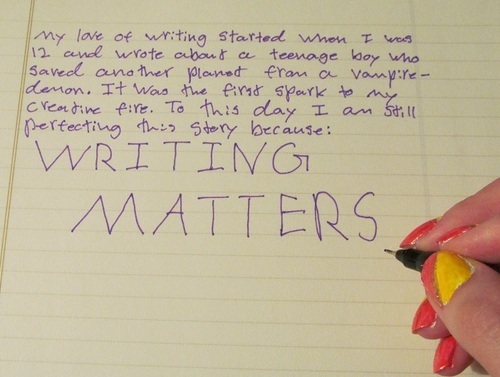 My love of writing started when I was
12 and wrote about a teenage boy who
saved another planet from a vampire-
demon. It was the first spark to my
creative fire. To this day I am still
perfecting this story because:
WRITING
MATTERS